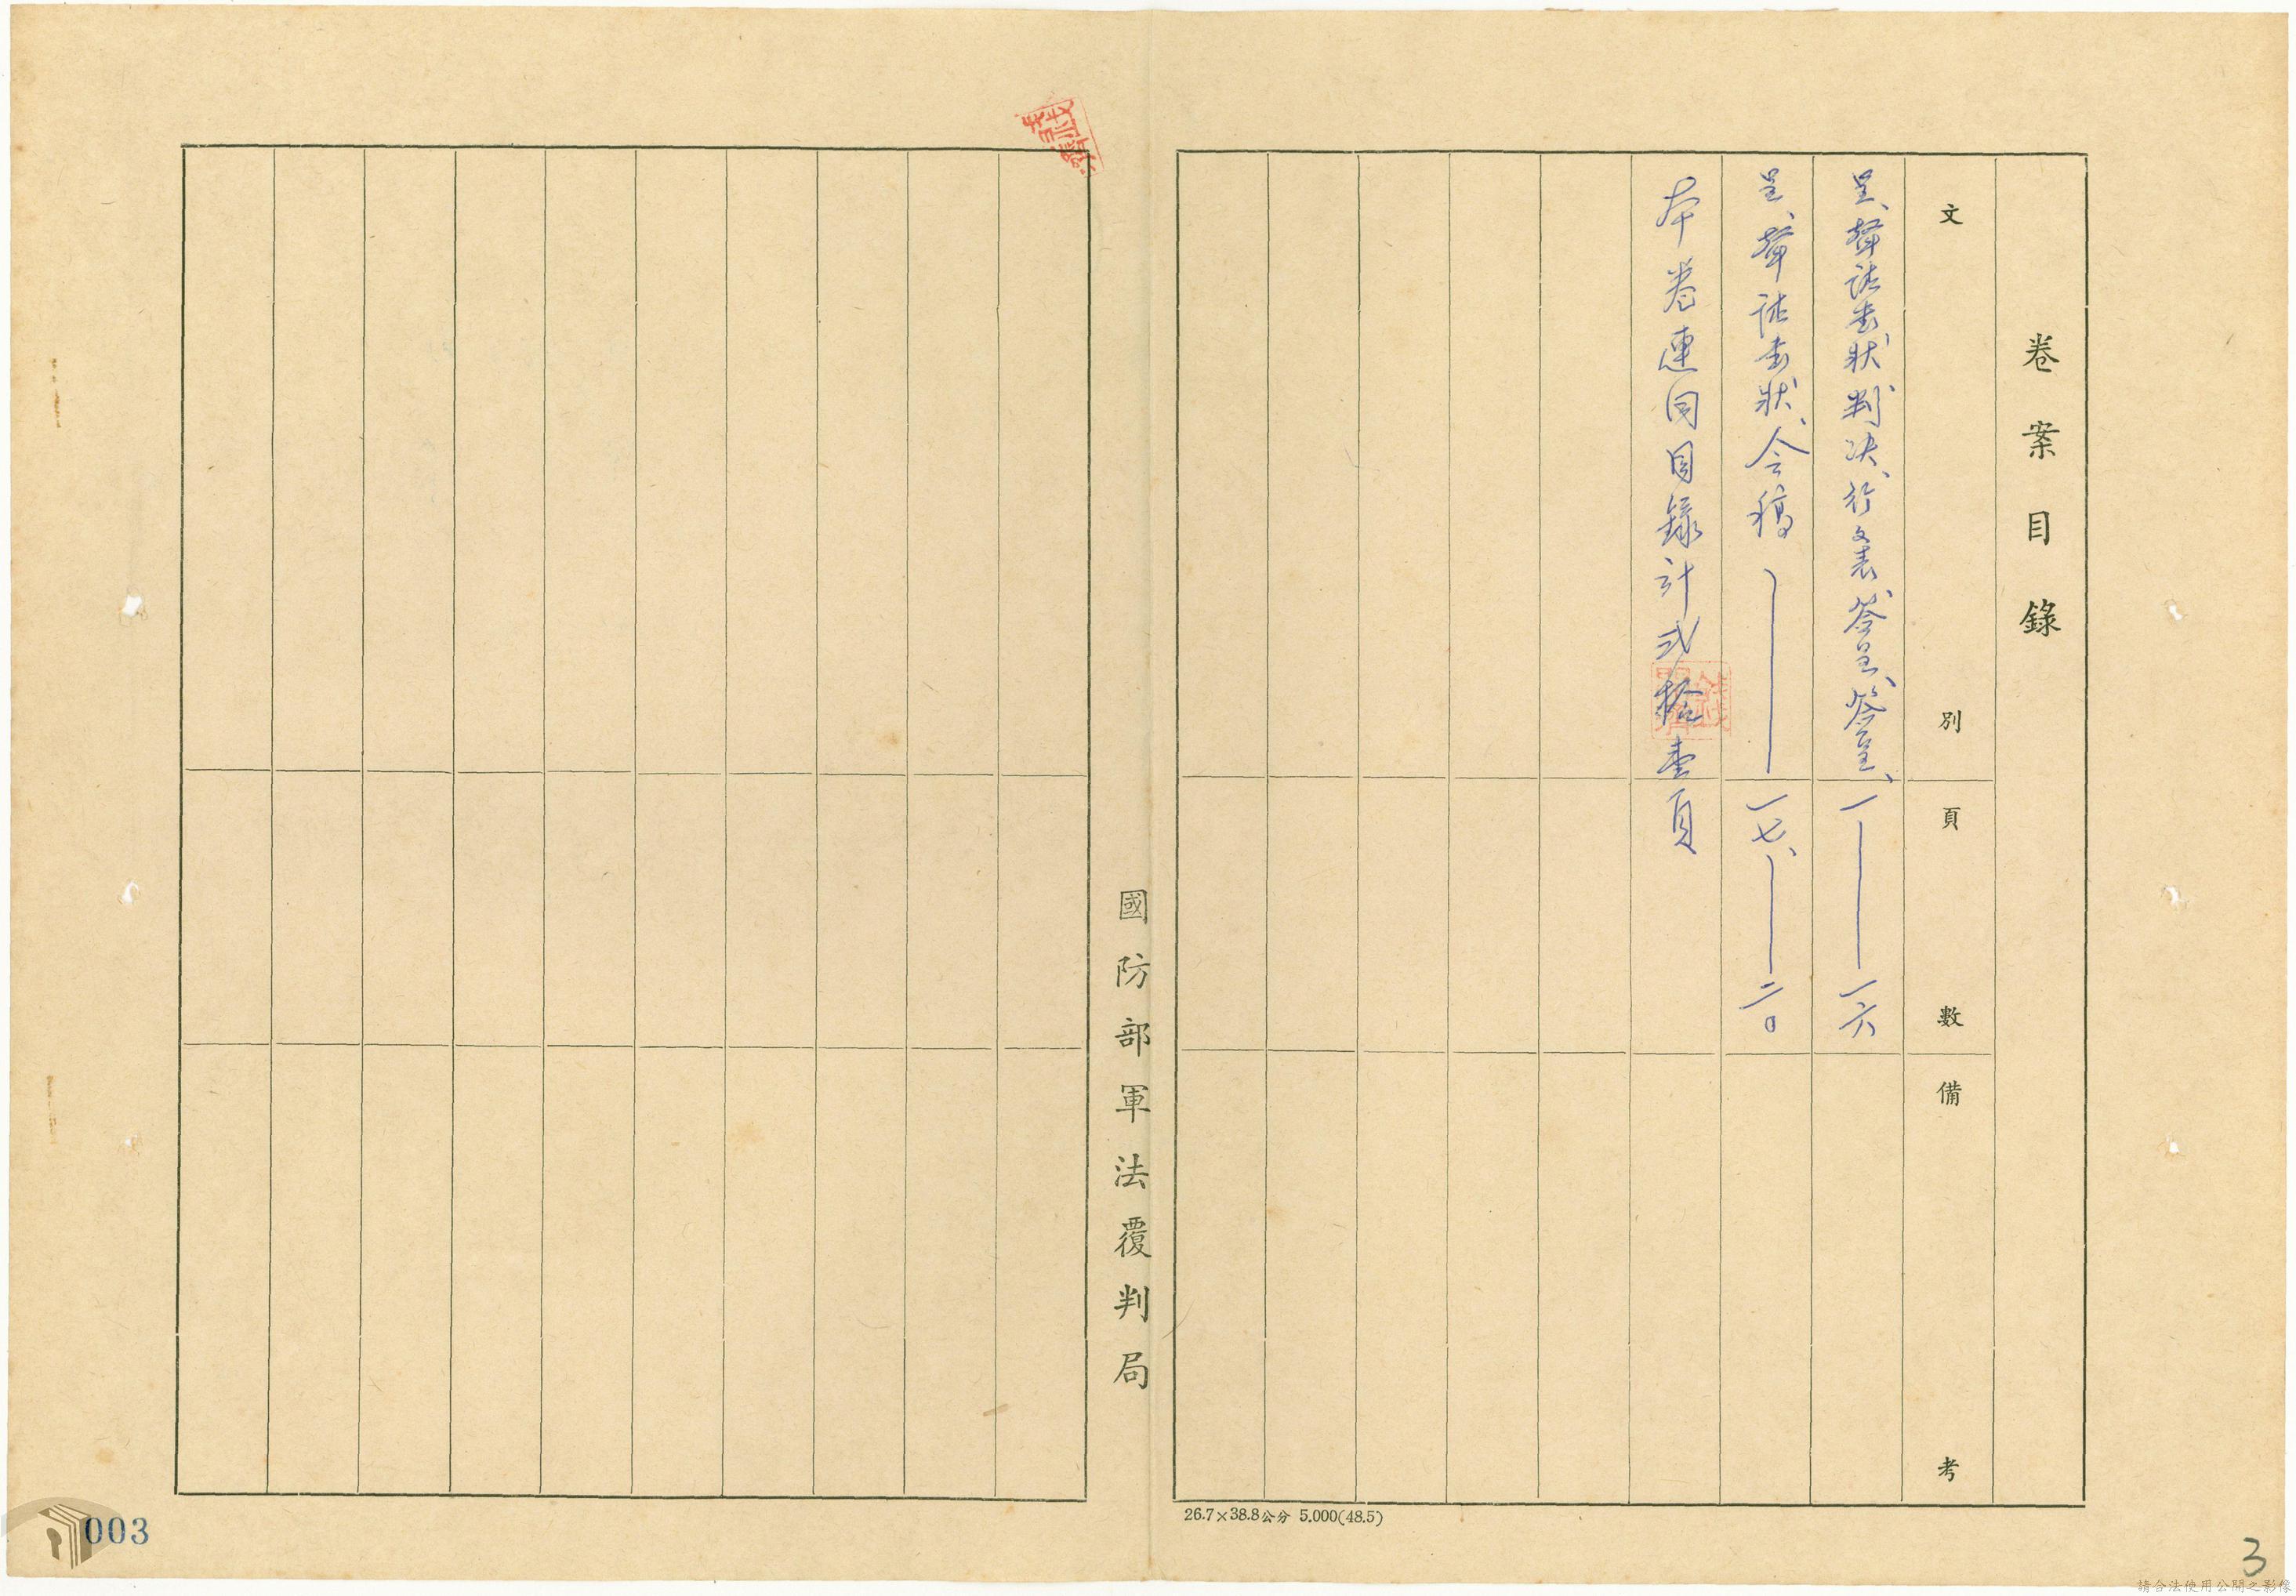 卷案目錄
文別
頁數
備考
呈、聲請書狀、判決、行文表、簽呈、簽呈、 一——一六
呈、聲請書狀、令稿—— 一七、——二〇
本卷連同目錄計弍拾壹頁
國防部軍法覆判局
26.7×38.8公分 5.000(48.5)
003
3
請合法使用公開之影像